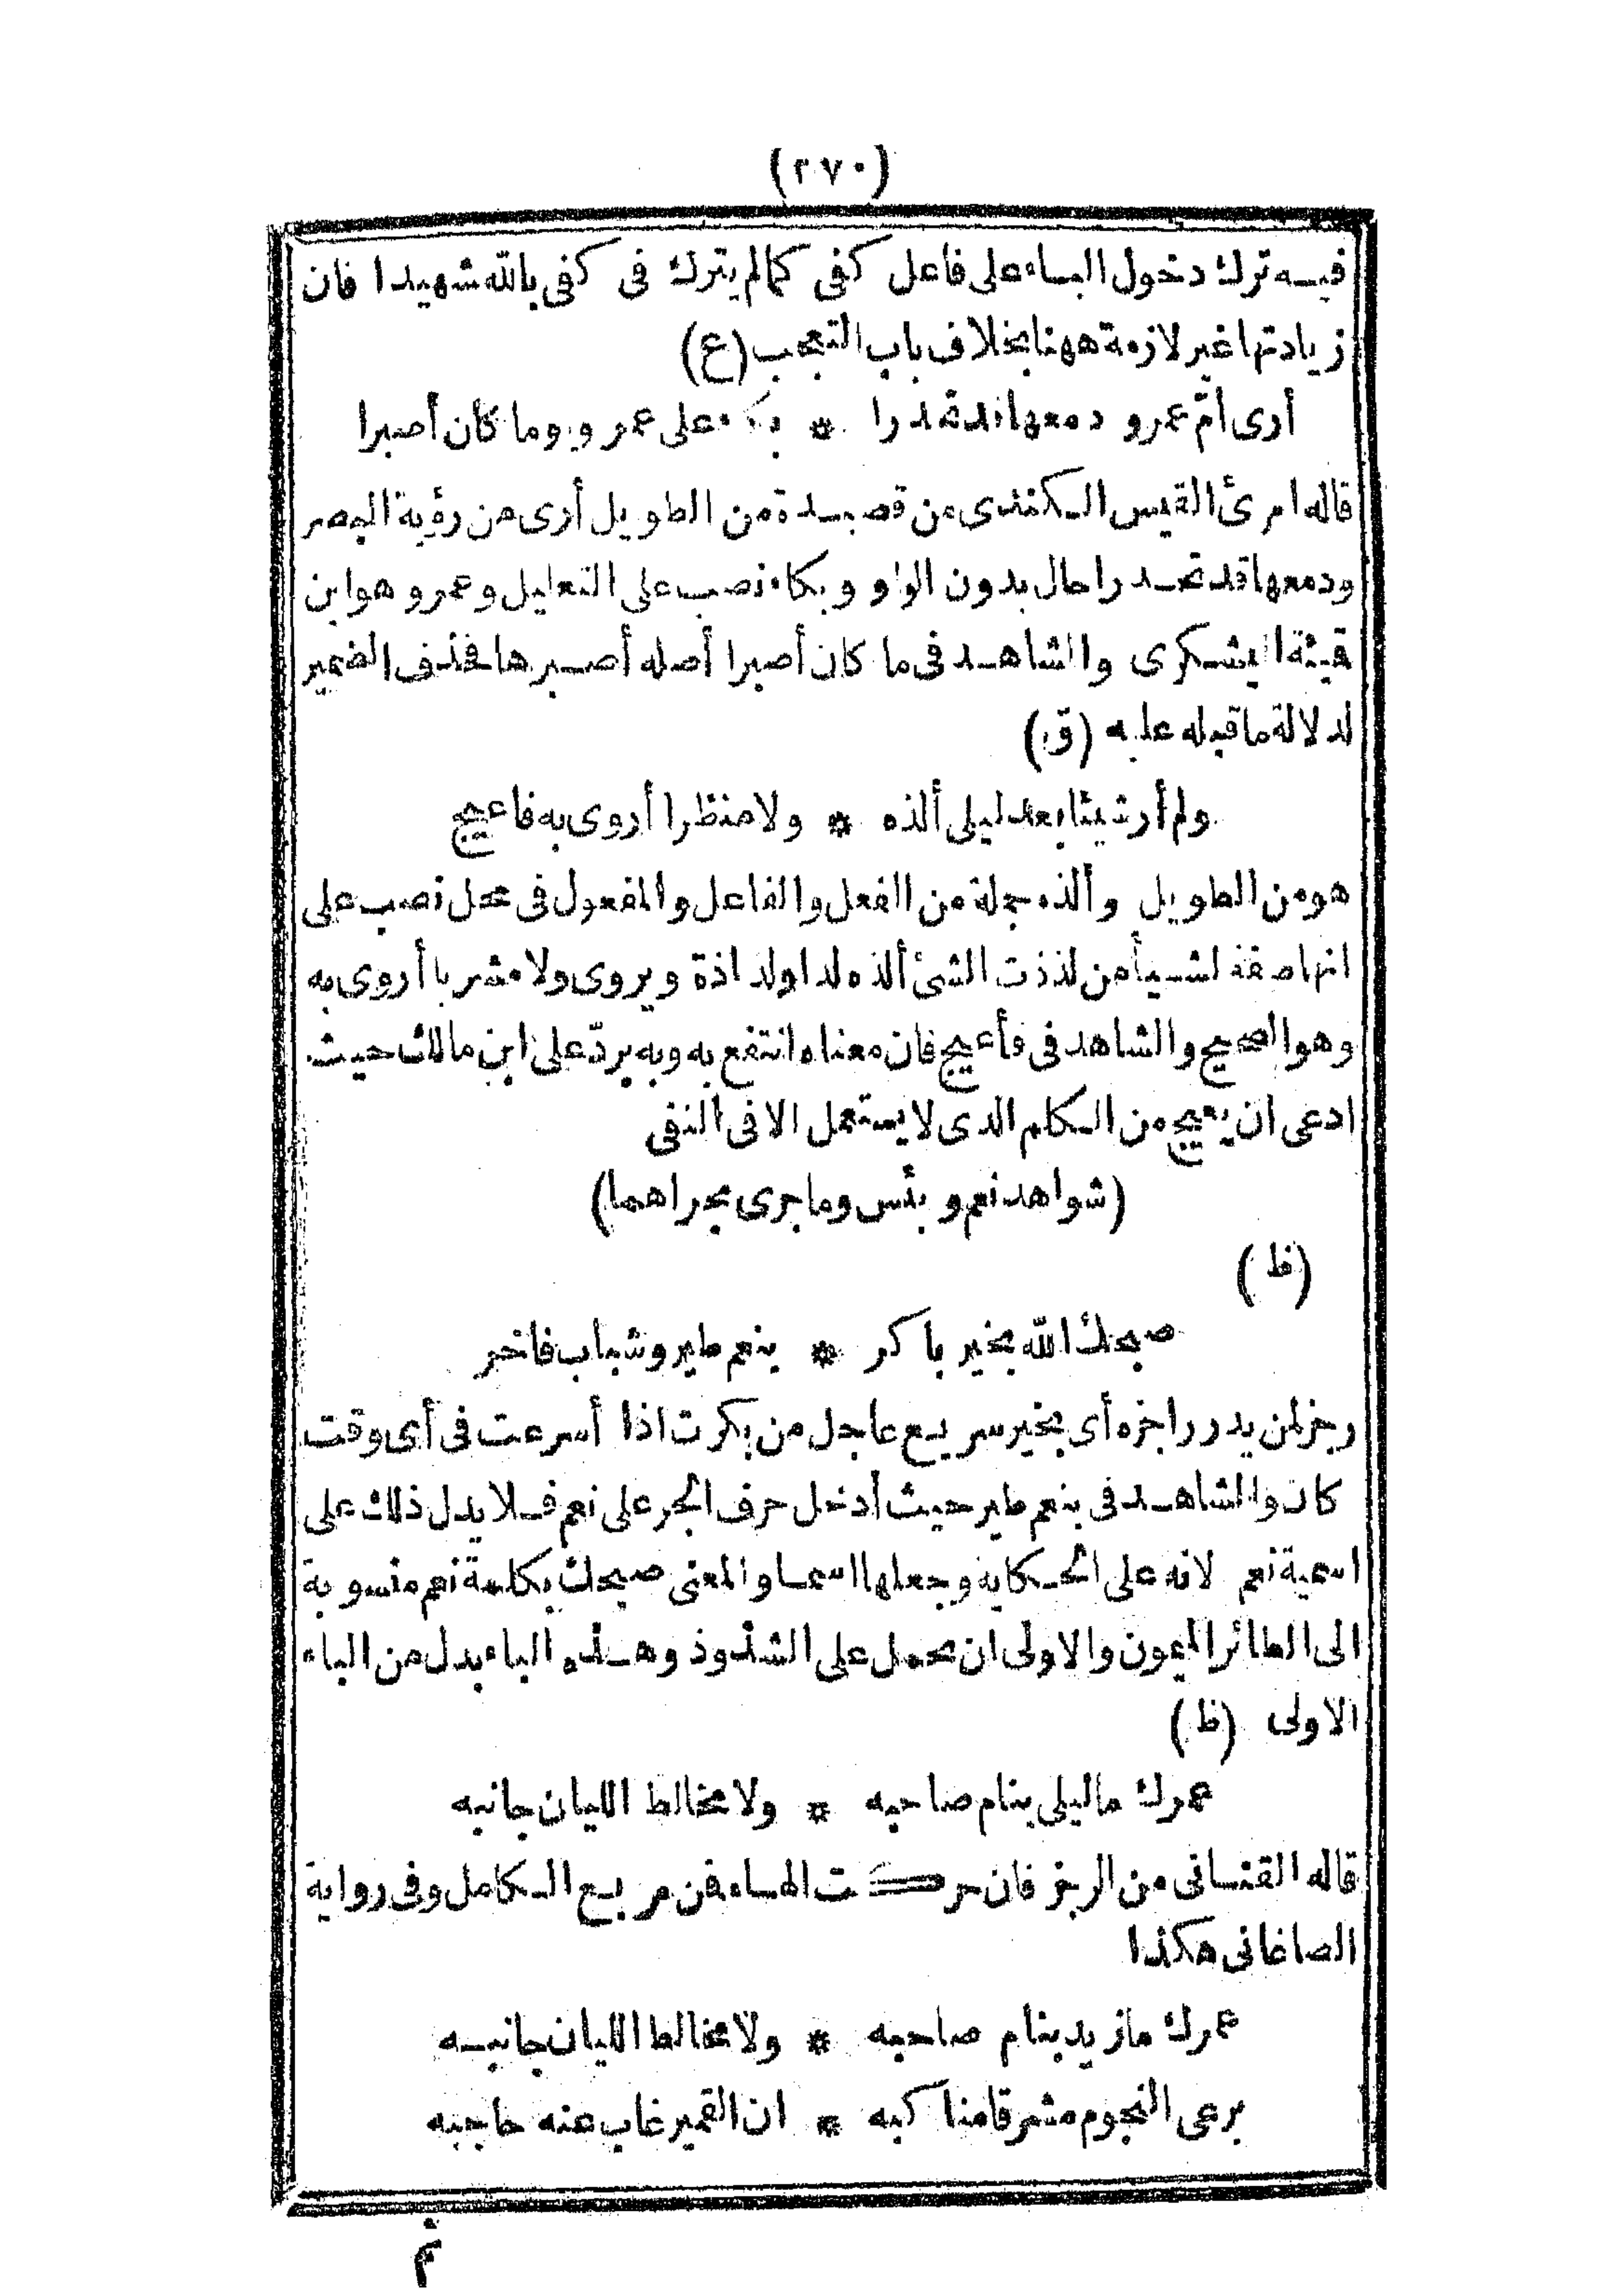 (٢٧٠)
فيه ترك دخول الباء على فاعل كفى كما لم يترك فى كفى بالله شهيدا فان
زيادتها غير لازمة ههنا بخلاف باب التعجب (ع)
أرى أمّ عمرو دمعها قد تحدرا * بكاء على عمرو وما كان أصبرا
قاله امرئ القيس الكندى من قصيدة من الطويل أرى من رؤية البصر
ودمعها قد تحدرا حال بدون الواو وبكاء نصب على التعليل وعمرو هو ابن
قيئة اليشكرى والشاهد فى ما كان أصبرا أصله أصبرها فحذف الضمير
لدلالة ما قبله عليه (ق)
ولم أر شيئا بعد ليلى ألذه * ولا منظرا أروى به فاعيج
هو من الطويل وألذه جملة من الفعل والفاعل والمفعول فى محل نصب على
انها صفة لشيأ من لذذت الشئ ألذه لذا ولذاذة ويروى ولا مشربا أروى به
وهو الصحيح والشاهد فى فأعيج فان معناه انتفع به وبه يردّ على ابن مالك حيث
ادعى ان يعيج من الكلم الذى لا يستعمل الا فى النفى
(شواهد نعم وبئس وما جرى مجراهما)
(ظ)
صبحك الله بخير باكر * بنعم طير وشباب فاخر
رجز لمن يدر راجزه أى بخير سريع عاجل من بكرت اذا أسرعت فى أى وقت
كان والشاهد فى بنعم طير حيث أدخل حرف الجر على نعم فلا يدل ذلك على
اسمية نعم لانه على الحكاية وجعلها اسما والمعنى صبحك بكلمة نعم منسوبة
الى الطائر الميمون والاولى ان يحمل على الشذوذ وهذه الباء بدل من الباء
الاولى (ظ)
عمرك ما ليلى بنام صاحبه * ولا مخالط الليان جانبه
قاله القنانى من الرجز فان حركت الهاء فمن مربع الكامل وفى رواية
الصاغانى هكذا
عمرك ما زيد بنام صاحبه * ولا مخالط الليان جانبه
يرعى النجوم مشرقا مناكبه * ان القمير غاب عنه حاجبه